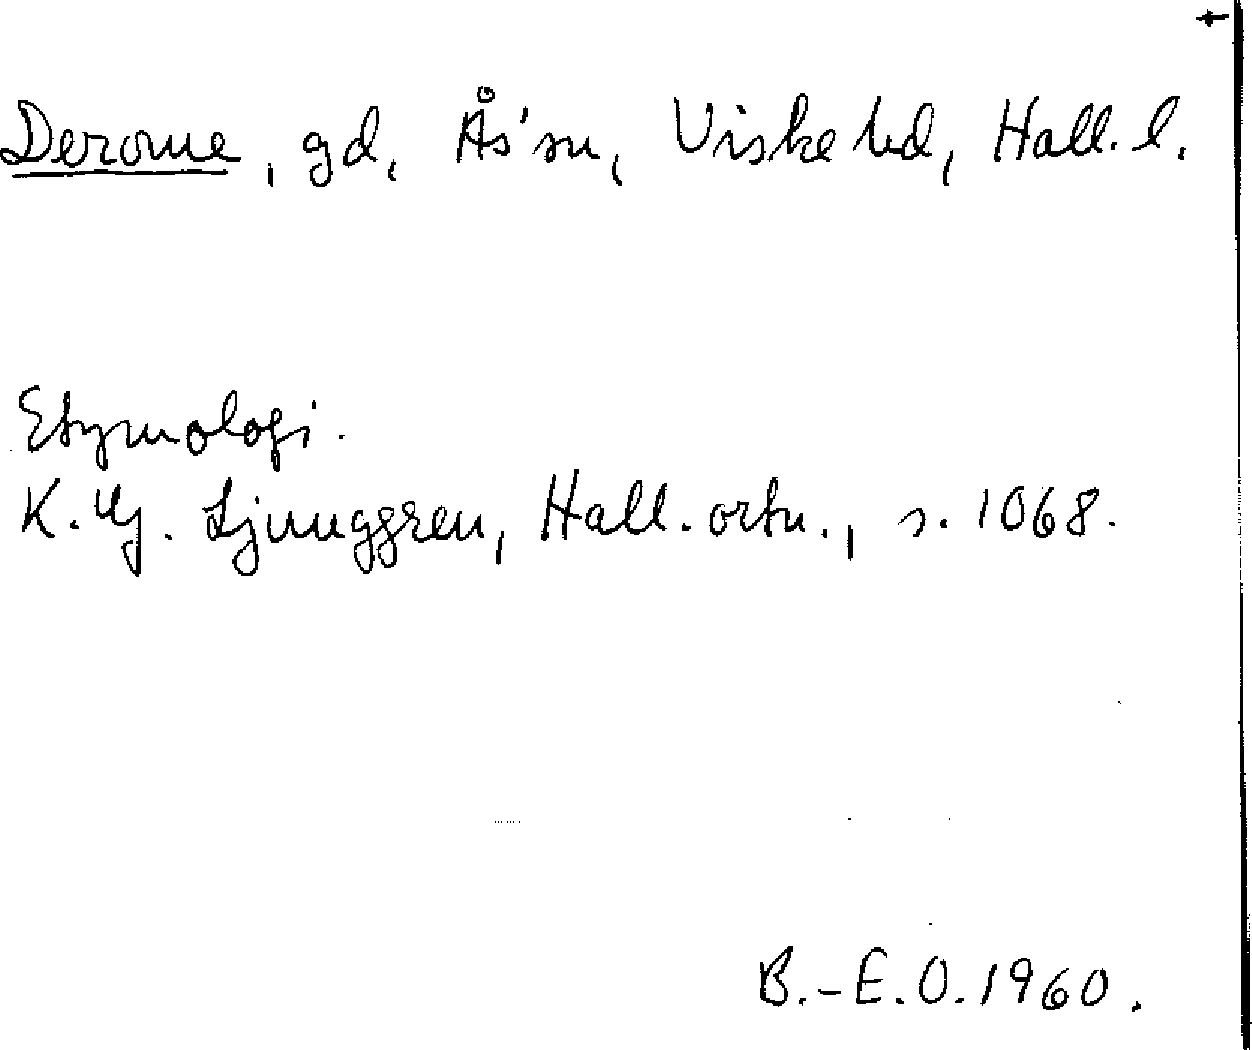 Derome, gd, Ås sn, Viske hd, Hall. l.
Etymologi.
K. Gj. Ljunggren, Hall. ortn., s. 1068.
B.-E.O. 1960.